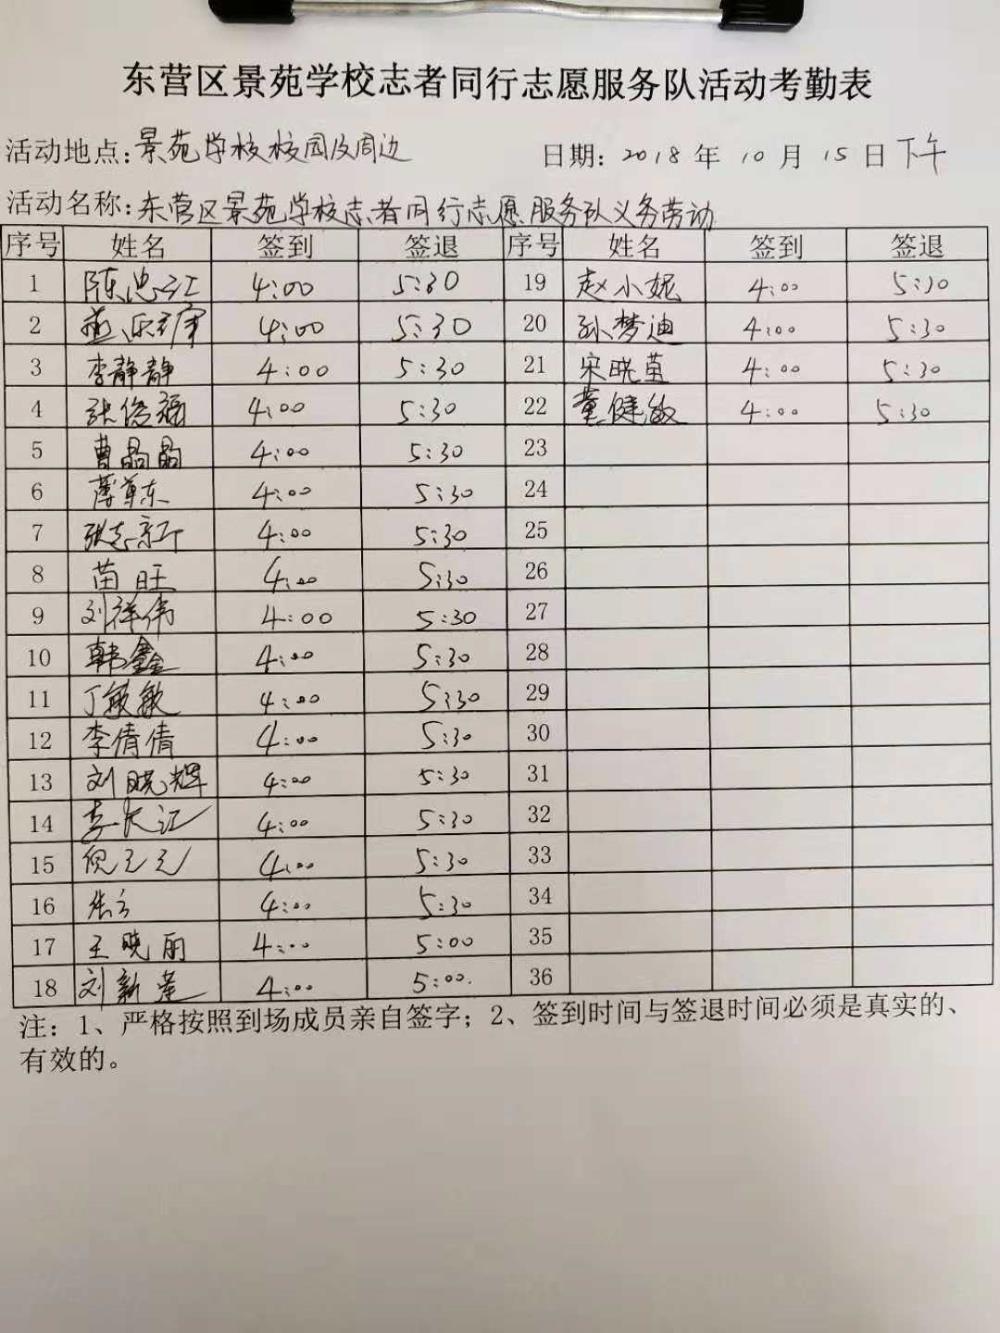 东营区景苑学校志者同行志愿服务队活动考勤表
活动地点:景苑学校校园及周边 日期: 2018 年 10 月 15 日下午
活动名称:东营区景苑学校志者同行志愿服务队义务劳动
序号 姓名 签到 签退 序号 姓名 签到 签退
1 陈忠江 4:00 5:30 19 赵小妮 4:00 5:30
2 4:00 5:30 20 孙梦迪 4:00 5:30
3 李静静 4:00 5:30 21 宋晓萤 4:00 5:30
4 张俊福 4:00 5:30 22 董健敏 4:00 5:30
5 曹晶晶 4:00 5:30 23
6 薄草东 4:00 5:30 24
7 张志 4:00 5:30 25
8 苗旺 4:00 5:30 26
9 刘祥伟 4:00 5:30 27
10 韩鑫 4:00 5:30 28
11 丁敏敏 4:00 5:30 29
12 李倩倩 4:00 5:30 30
13 刘晓辉 4:00 5:30 31
14 李长江 4:00 5:30 32
15 倪元元 4:00 5:30 33
16 4:00 5:30 34
17 王晓丽 4:00 5:00 35
18 刘新 4:00 5:00. 36
注：1、严格按照到场成员亲自签字；2、签到时间与签退时间必须是真实的、
有效的。